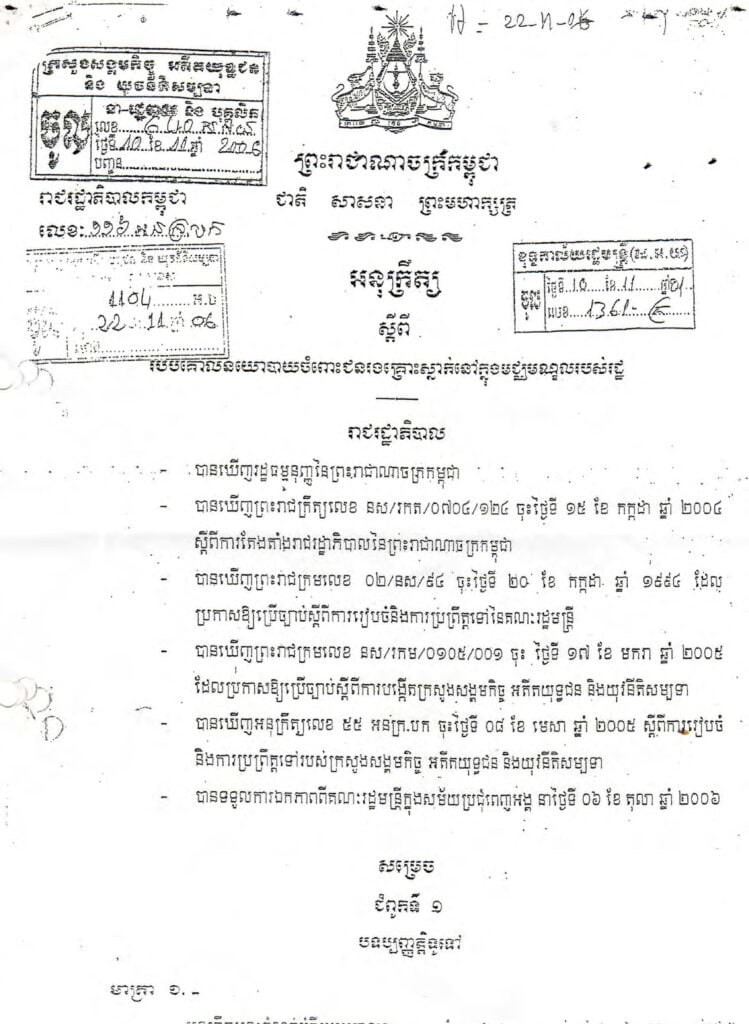 ហ - 22-11-06
ក្រសួងសង្គមកិច្ច អតីតយុទ្ធជន
និង យុវនីតិសម្បទា
នា-រដ្ឋបាល និង បុគ្គលិក
ចូល
លេខ
ថ្ងៃទី 10 ខែ 11 ឆ្នាំ 2006
បញ្ជូន
ព្រះរាជាណាចក្រកម្ពុជា
រាជរដ្ឋាភិបាលកម្ពុជា
ជាតិ សាសនា ព្រះមហាក្សត្រ
លេខៈ ១១៦ អនក្រ.បក
1104
22 11 06
ខុទ្ទកាល័យរដ្ឋមន្ត្រី
ចូល
ថ្ងៃទី 10 ខែ 11 ឆ្នាំ
លេខ 1361
អនុក្រឹត្យ
ស្តីពី
របបគោលនយោបាយចំពោះជនរងគ្រោះស្នាក់នៅក្នុងមជ្ឈមណ្ឌលរបស់រដ្ឋ
រាជរដ្ឋាភិបាល
- បានឃើញរដ្ឋធម្មនុញ្ញនៃព្រះរាជាណាចក្រកម្ពុជា
- បានឃើញព្រះរាជក្រឹត្យលេខ នស/រកត/០៧០៤/១២៤ ចុះថ្ងៃទី ១៥ ខែ កក្កដា ឆ្នាំ ២០០៤
ស្តីពីការតែងតាំងរាជរដ្ឋាភិបាលនៃព្រះរាជាណាចក្រកម្ពុជា
- បានឃើញព្រះរាជក្រមលេខ ០២/នស/៩៤ ចុះថ្ងៃទី ២០ ខែ កក្កដា ឆ្នាំ ១៩៩៤ ដែល
ប្រកាសឱ្យប្រើច្បាប់ស្តីពីការរៀបចំនិងការប្រព្រឹត្តទៅនៃគណៈរដ្ឋមន្ត្រី
- បានឃើញព្រះរាជក្រមលេខ នស/រកម/០១០៥/០០១ ចុះ ថ្ងៃទី ១៧ ខែ មករា ឆ្នាំ ២០០៥
ដែលប្រកាសឱ្យប្រើច្បាប់ស្តីពីការបង្កើតក្រសួងសង្គមកិច្ច អតីតយុទ្ធជន និងយុវនីតិសម្បទា
- បានឃើញអនុក្រឹត្យលេខ ៥៥ អនក្រ.បក ចុះថ្ងៃទី ០៨ ខែ មេសា ឆ្នាំ ២០០៥ ស្តីពីការរៀបចំ
និងការប្រព្រឹត្តទៅរបស់ក្រសួងសង្គមកិច្ច អតីតយុទ្ធជន និងយុវនីតិសម្បទា
- បានទទួលការឯកភាពពីគណៈរដ្ឋមន្ត្រីក្នុងសម័យប្រជុំពេញអង្គ នាថ្ងៃទី ០៦ ខែ តុលា ឆ្នាំ ២០០៦
សម្រេច
ជំពូកទី ១
បទប្បញ្ញត្តិទូទៅ
មាត្រា ១.-